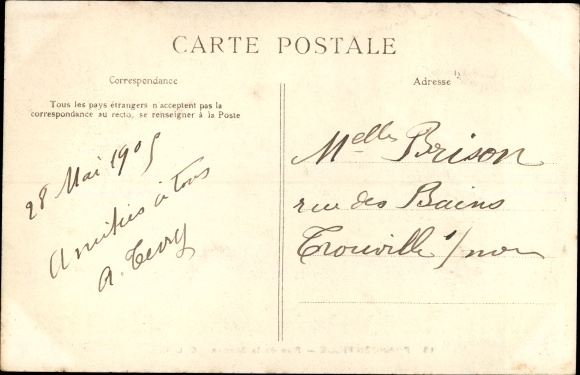 CARTE POSTALE
Correspondance
Tous les pays étrangers n'acceptent pas la
correspondance au recto, se renseigner à la Poste
28 Mai 1905
Amitiés à tous
A. Terry
Adresse
Melles Brison
rue des Bains
Trouville s/mer